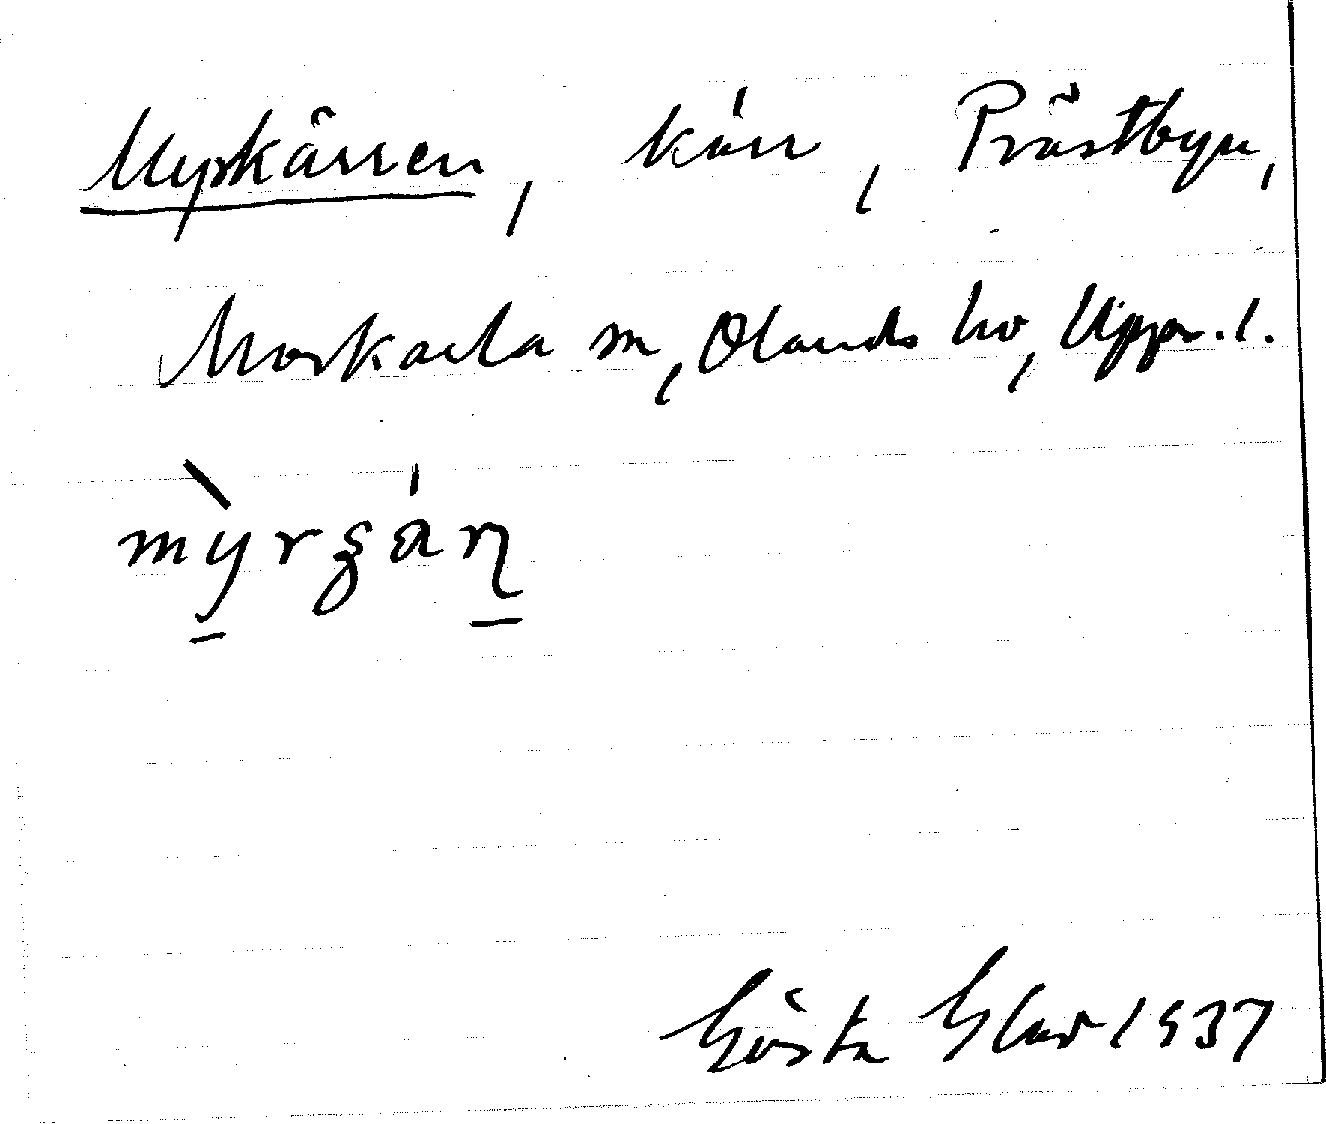 Myrkärren, kärr, Prästbyn,
Morkarla sn, Olands hd, Uppsv. l.
Gösta Glad 1937